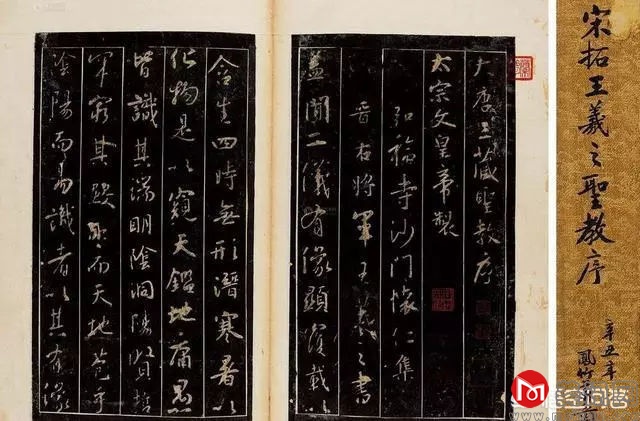 宋拓王羲之聖教序
辛丑年
鳳竹
大唐三藏聖教序
太宗文皇帝製
弘福寺沙門懷仁集
晉右將軍王羲之書
蓋聞二儀有像顯覆載以
含生四時無形潛寒暑以
化物是以窺天鑑地庸愚
皆識其端明陰洞陽賢哲
罕窮其數然而天地苞乎
陰陽而易識者以其有像